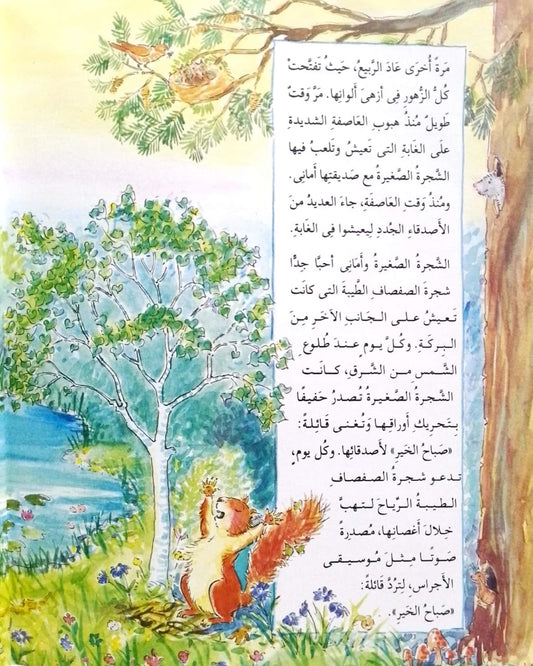 مَرةً أُخرَى عَادَ الرَّبيعُ، حَيثُ تَفتَّحتْ
كُلُّ الزُّهورِ فِى أزهَى ألوانِها. مَرَّ وَقتٌ
طَويلٌ مُنذُ هبوبِ العَاصفةِ الشديدةِ
علَى الغَابةِ التى تَعيشُ وتَلعبُ فيها
الشَّجرةُ الصَّغيرةُ مع صَديقتِها أمَانى.
ومُنذُ وَقتِ العَاصفةِ، جاءَ العديدُ منَ
الأَصدقاءِ الجُددِ لِيعيشُوا فِى الغَابةِ.
الشَّجرةُ الصَّغيرةُ وأمَانِى أحبَّا جِدًّا
شجرةَ الصفصافِ الطَّيبةَ التى كانَت
تَـعيشُ علـى الجَـانبِ الآخَرِ مِـنَ
البِركَةِ. وكُـلَّ يـومٍ عـنـدَ طُلـوعِ
الشَّـمسِ مـن الشَّـرقِ، كَـانَـت
الشَّجرةُ الصَّغيرةُ تُصدرُ حَفيفًا
بِتَحريكِ أوراقِـها وَتُـغنـى قَـائِلـةً:
«صَباحُ الخَير» لأصدقائِها. وكُل يومٍ،
تـدعـو شـجـرةُ الـصـفـصـافِ
الـطـيـبـةُ الـرِّيـاحَ لـتـهـبَّ
خِـلالَ أغصَانِـها، مُـصدرةً
صَـوتًـا مِثـلَ مُـوسيـقـى
الأجراسِ، لِتردَّ قَائلةً:
«صَباحُ الخَيرِ».